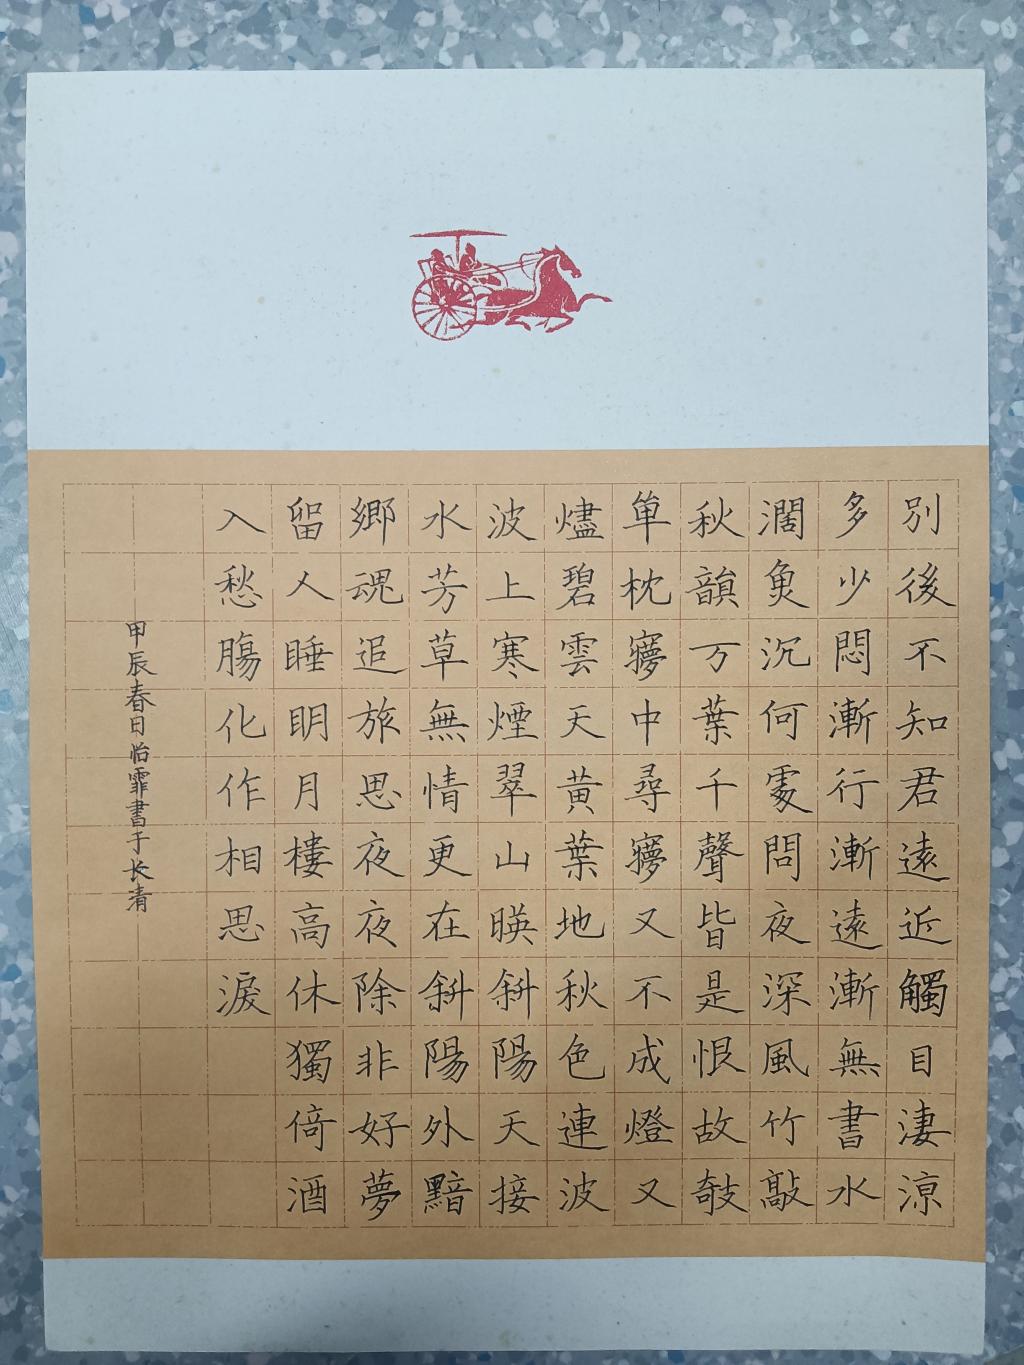 別後不知君遠近觸目淒涼
多少悶漸行漸遠漸無書水
濶魚沉何處問夜深風竹敲
秋韻万葉千聲皆是恨故攲
單枕夢中尋夢又不成燈又
燼碧雲天黃葉地秋色連波
波上寒煙翠山暎斜陽天接
水芳草無情更在斜陽外黯
鄉魂追旅思夜夜除非好夢
留人睡明月樓高休獨倚酒
入愁腸化作相思淚
甲辰春日怡霏書于长清